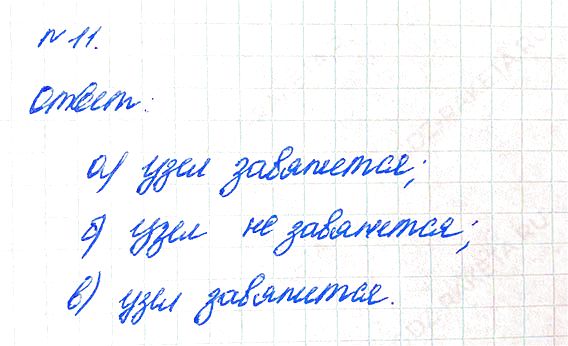 № 11.
Ответ:
а) узел завяжется;
б) узел не завяжется;
в) узел завяжется.